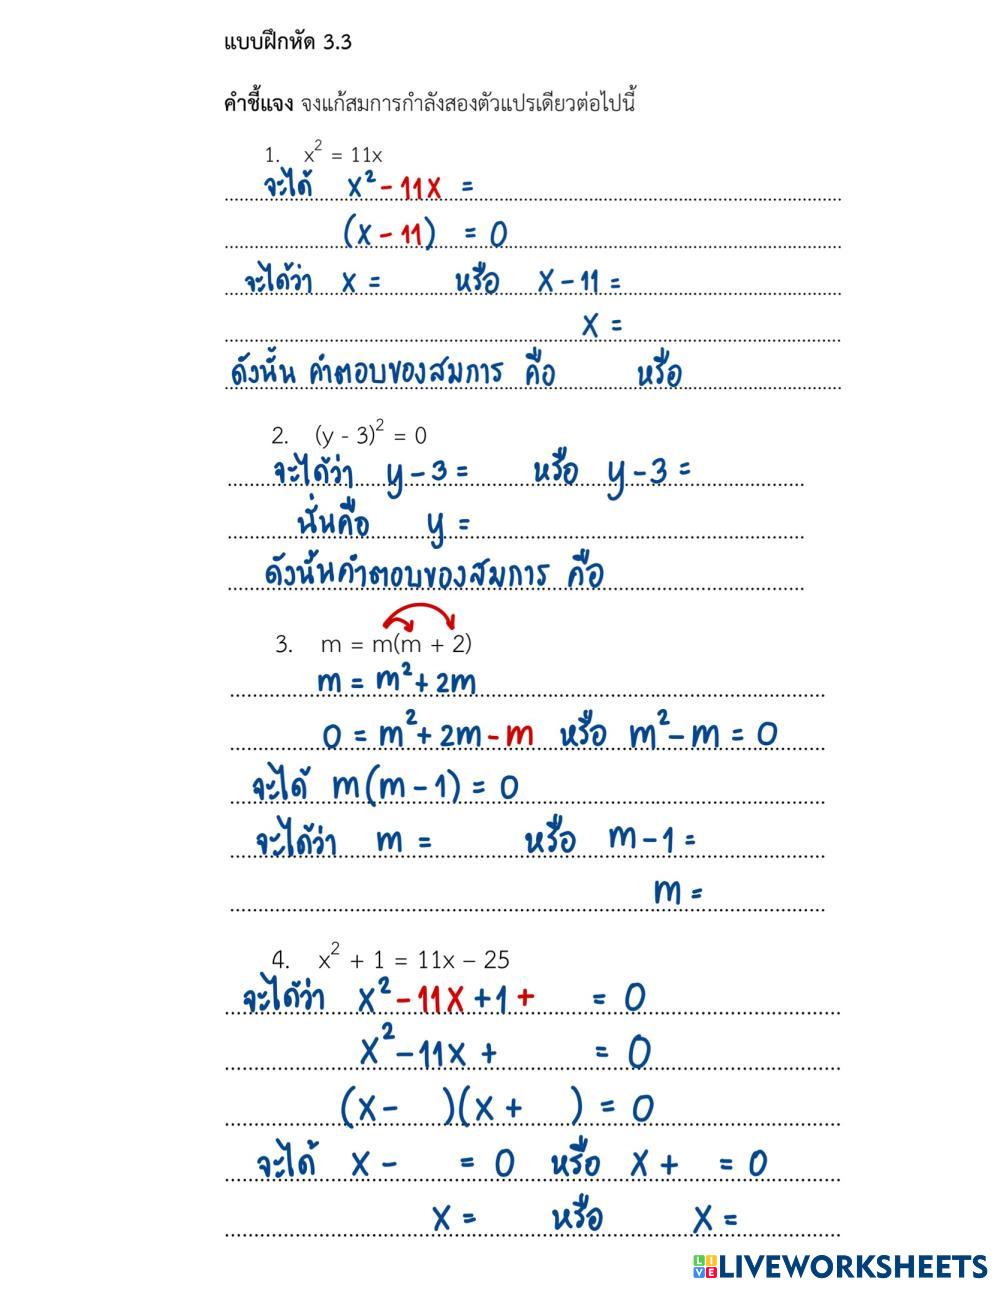 แบบฝึกหัด 3.3
คำชี้แจง จงแก้สมการกำลังสองตัวแปรเดียวต่อไปนี้
1. x² = 11x
จะได้ x² - 11x =
(x - 11) = 0
จะได้ว่า x = หรือ x - 11 =
x =
ดังนั้น คำตอบของสมการ คือ หรือ
2. (y - 3)² = 0
จะได้ว่า y - 3 = หรือ y - 3 =
นั่นคือ y =
ดังนั้นคำตอบของสมการ คือ
3. m = m(m + 2)
m = m² + 2m
0 = m² + 2m - m หรือ m² - m = 0
จะได้ m(m - 1) = 0
จะได้ว่า m = หรือ m - 1 =
m =
4. x² + 1 = 11x – 25
จะได้ว่า x² - 11x + 1 + = 0
x² - 11x + = 0
(x - )(x + ) = 0
จะได้ x - = 0 หรือ x + = 0
x = หรือ x =
LIVEWORKSHEETS